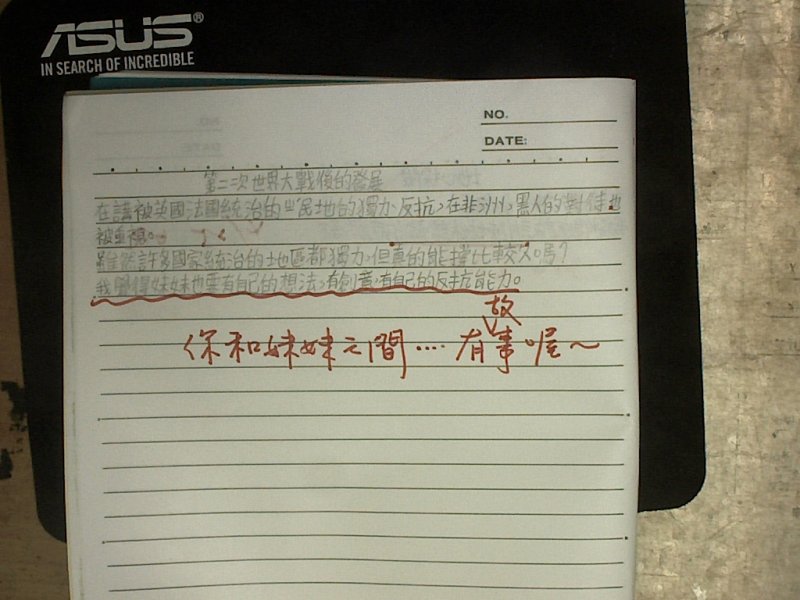 ASUS®
IN SEARCH OF INCREDIBLE
NO.
DATE:
第二次世界大戰後的發展
在講被英國法國統治的民地的獨力反抗,在非洲,黑人的對待也
被重視。
雖然許多國家統治的地區都獨力,但真的能撐比較久嗎?
我覺得妹妹也要有自己的想法,有創意,有自己的反抗能力。
你和妹妹之間....有故事喔~